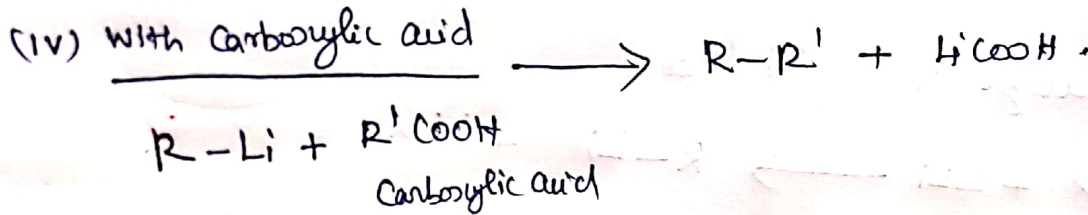 (IV) With Carboxylic acid ⟶ R-R' + LiCOOH.
R-Li + R'COOH
Carboxylic acid